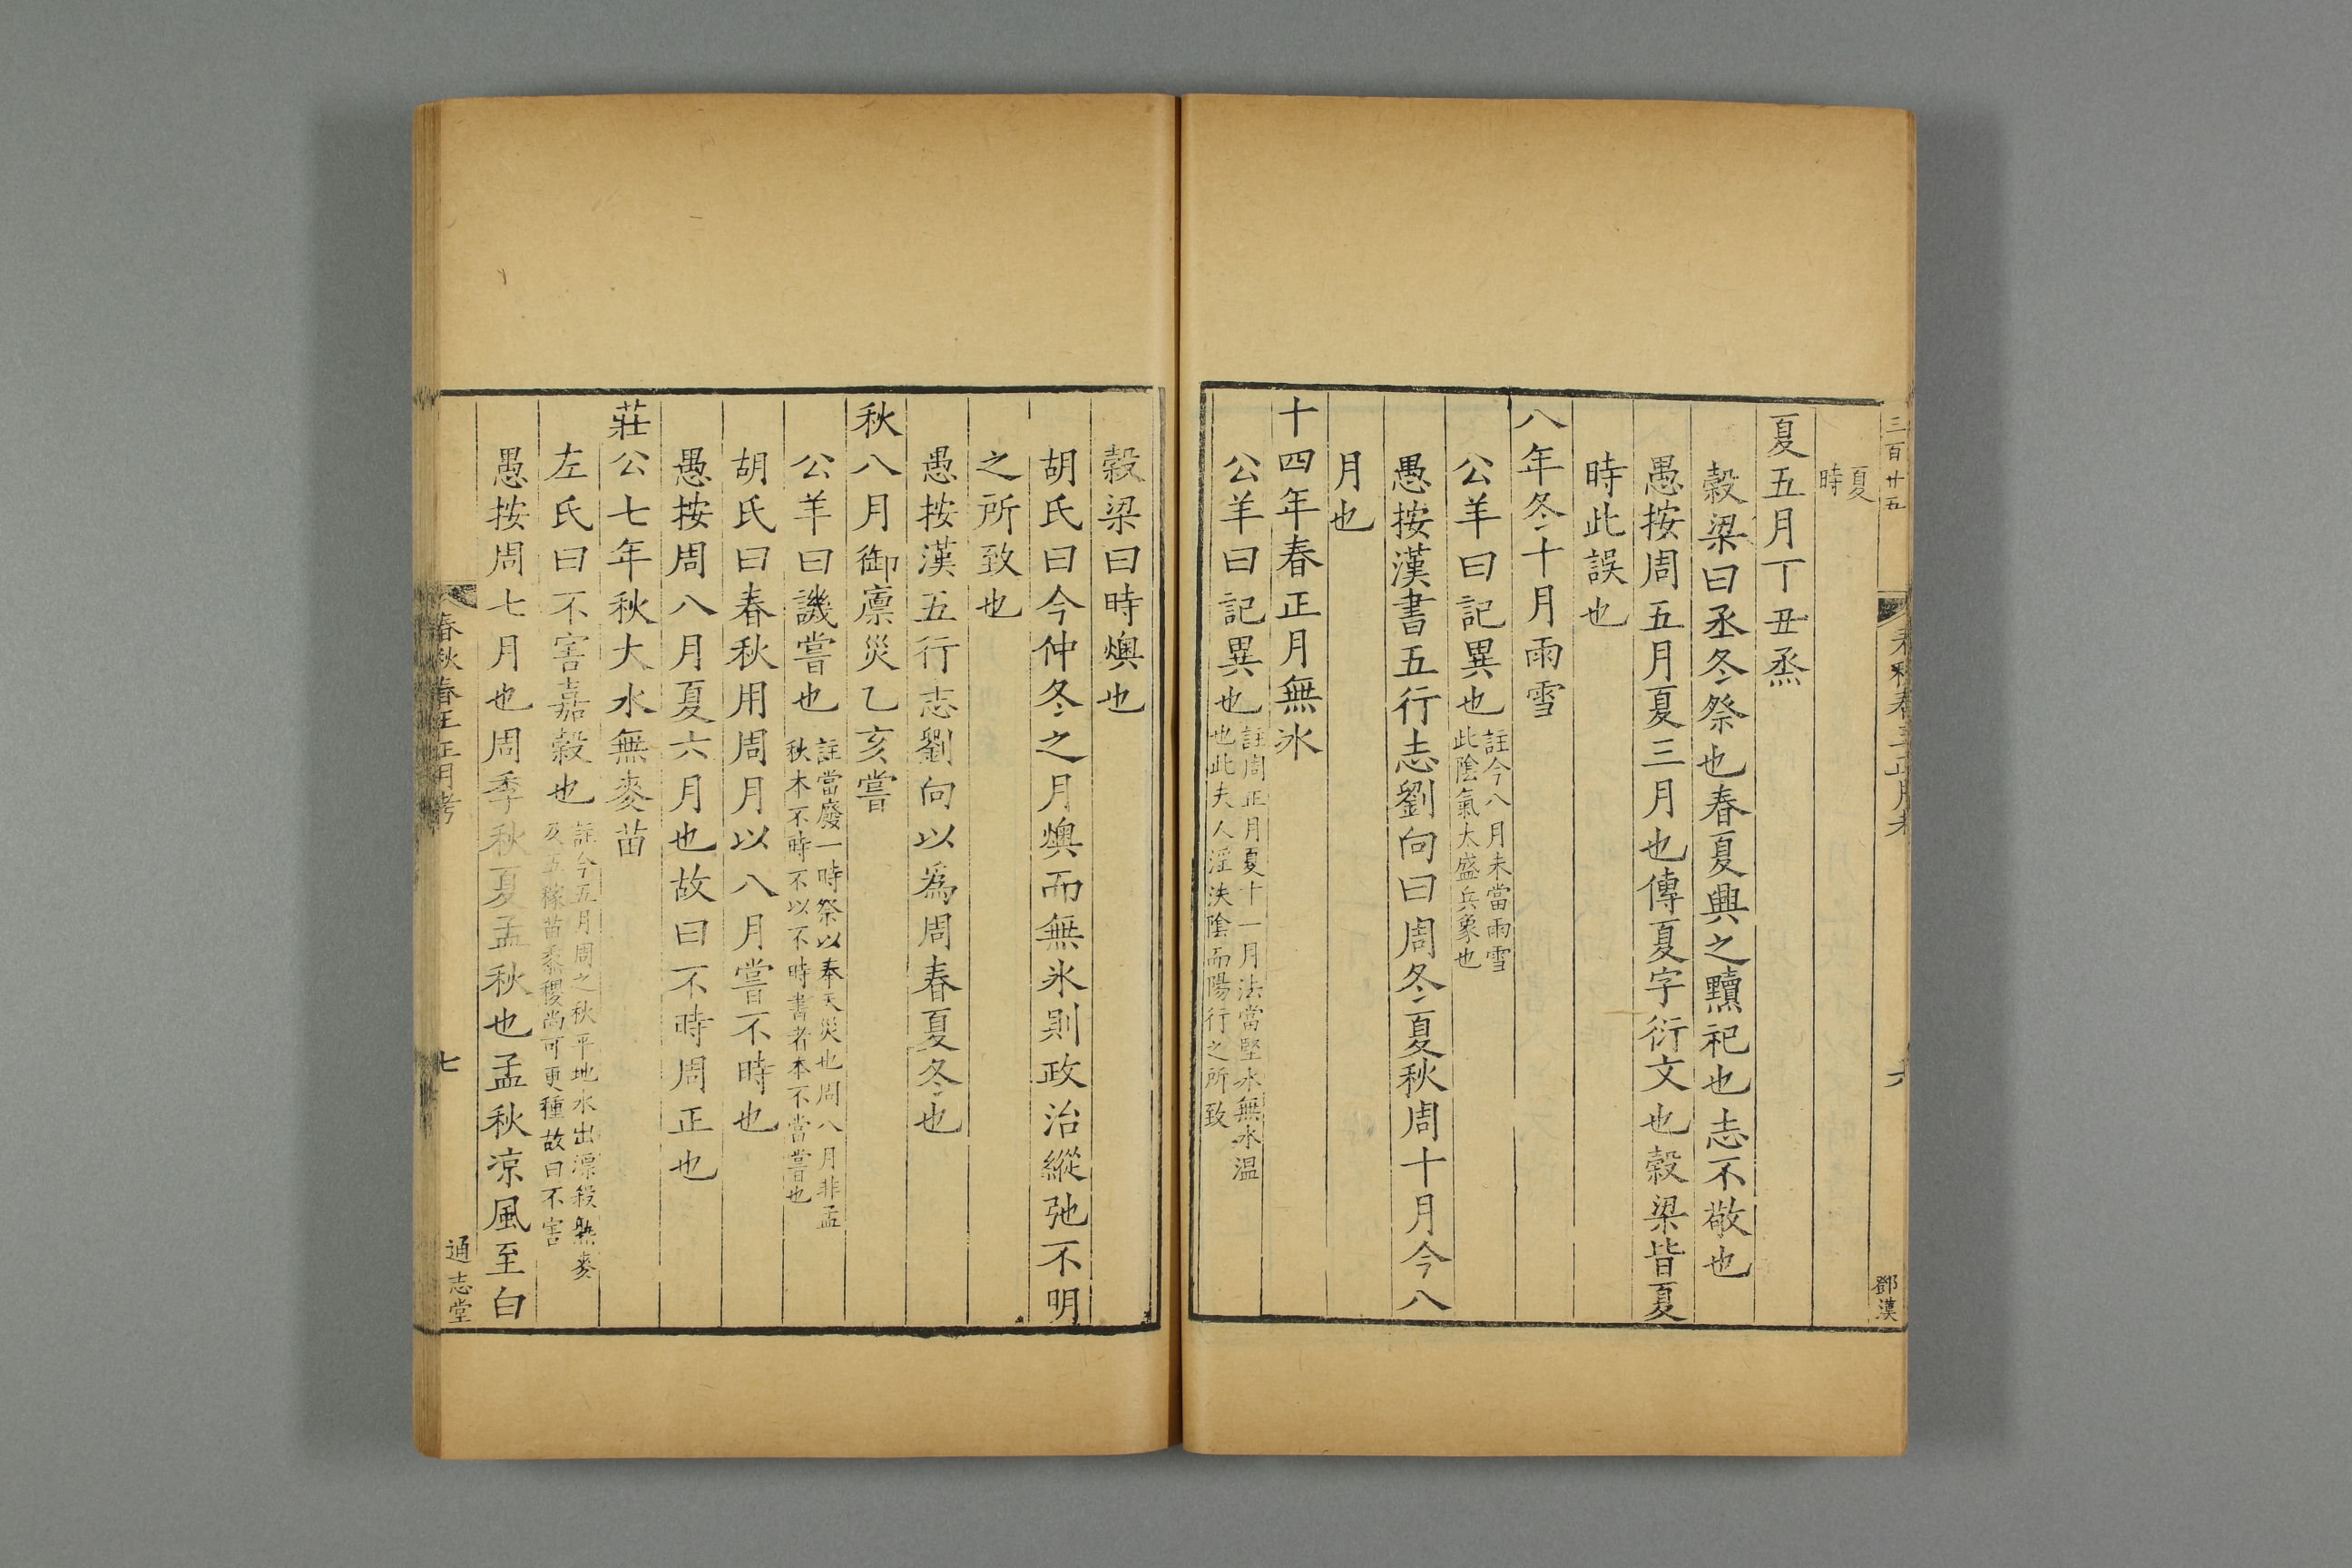 三百廿五
春秋春王正月考
六
鄧漢
夏
時
夏五月丁丑烝
穀梁曰烝冬祭也春夏興之黷祀也志不敬也
愚按周五月夏三月也傳夏字衍文也穀梁皆夏
時此誤也
八年冬十月雨雪
公羊曰記異也註今八月未當雨雪
此陰氣大盛兵象也
愚按漢書五行志劉向曰周冬夏秋周十月今八
月也
十四年春正月無冰
公羊曰記異也註周正月夏十一月法當堅冰無冰温
也此夫人淫泆陰而陽行之所致
穀梁曰時燠也
胡氏曰今仲冬之月燠而無冰則政治縱弛不明
之所致也
愚按漢五行志劉向以為周春夏冬也
秋八月御廩災乙亥嘗
公羊曰譏嘗也註當廢一時祭以奉天災也周八月非孟
秋本不時不以不時書者本不當嘗也
胡氏曰春秋用周月以八月嘗不時也
愚按周八月夏六月也故曰不時周正也
莊公七年秋大水無麥苗
左氏曰不害嘉穀也註今五月周之秋平地水出漂殺熟麥
及五稼苗黍稷尚可更種故曰不害
愚按周七月也周季秋夏孟秋也孟秋凉風至白
春秋春王正月考
七
通志堂